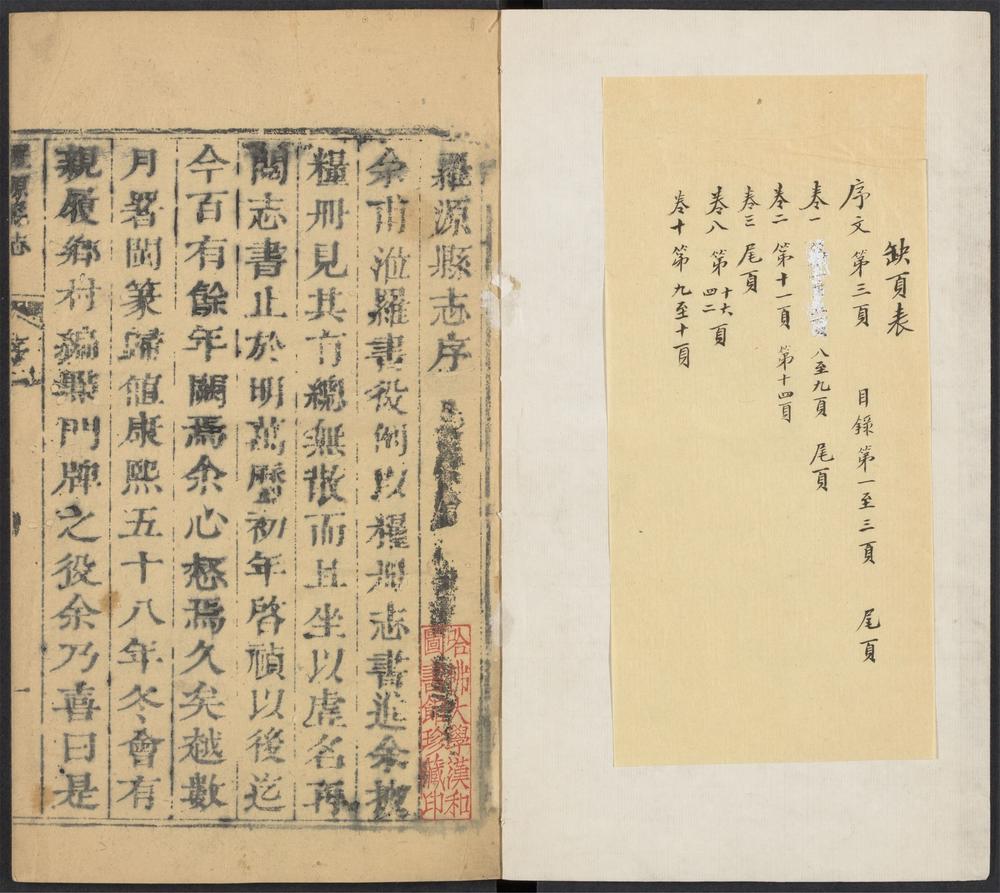 缺頁表
序文 第三頁 目錄第一至三頁 尾頁
卷一 八至九頁 尾頁
卷二 第十一頁 第十四頁
卷三 尾頁
卷八 第十六 四二 頁
卷十 第九至十頁
羅源縣志序
哈佛大學漢和
圖書館珍藏印
余甫涖羅書役例以糧冊志書進余披
糧冊見其有總無散而且坐以虛名再
閱志書止於明萬曆初年啓禎以後迄
今百有餘年闕焉余心惄焉久矣越數
月署閩篆歸值康熙五十八年冬會有
親履鄉村編點門牌之役余乃喜曰是
羅源縣志
序
一